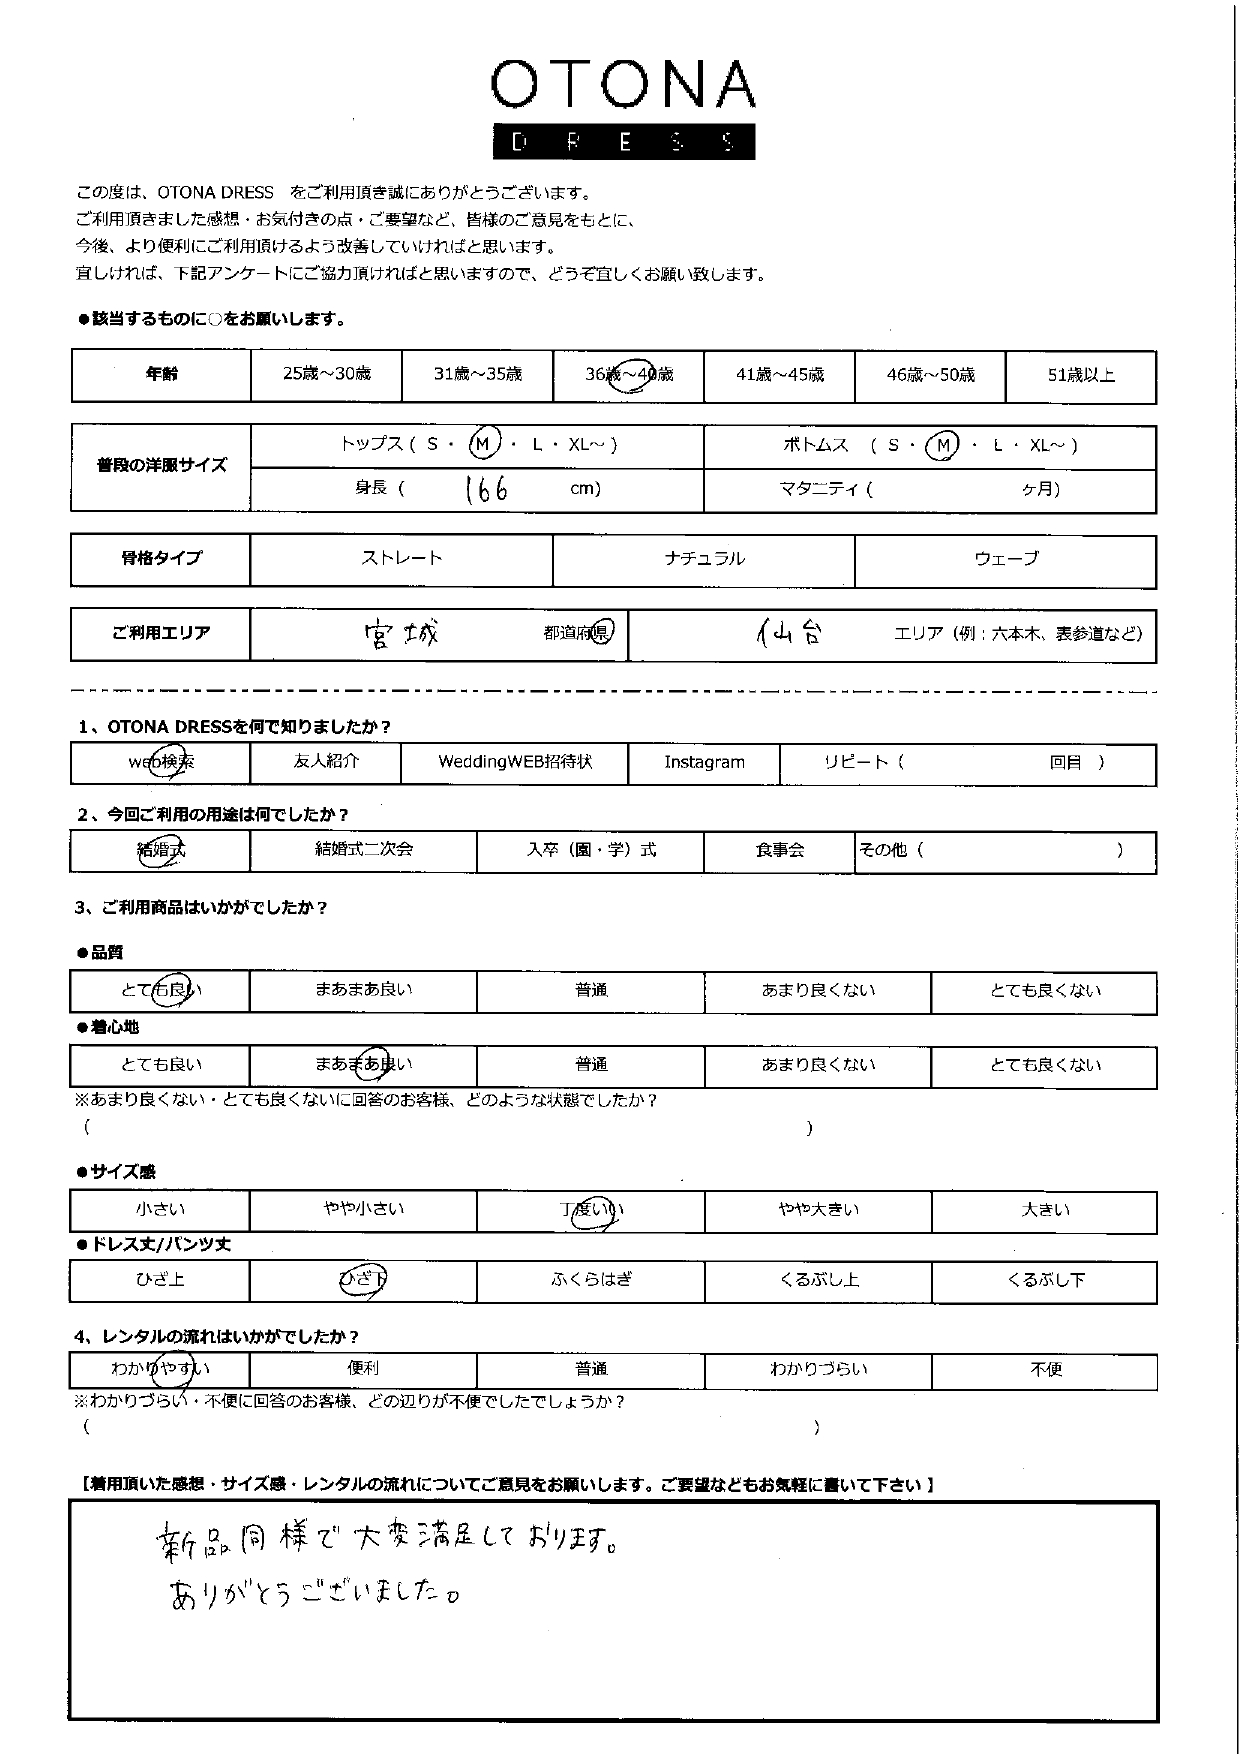 OTONA
DRESS
この度は、OTONA DRESS をご利用頂き誠にありがとうございます。
ご利用頂きました感想・お気付きの点・ご要望など、皆様のご意見をもとに、
今後、より便利にご利用頂けるよう改善していければと思います。
宜しければ、下記アンケートにご協力頂ければと思いますので、どうぞ宜しくお願い致します。
●該当するものに○をお願いします。
年齢 25歳～30歳 31歳～35歳 36歳～40歳 41歳～45歳 46歳～50歳 51歳以上
普段の洋服サイズ
トップス ( S ・ M ・ L ・ XL～ ) ボトムス ( S ・ M ・ L ・ XL～ )
身長 ( 166 cm) マタニティ ( ヶ月)
骨格タイプ ストレート ナチュラル ウェーブ
ご利用エリア 宮城 都道府県 仙台 エリア（例：六本木、表参道など）
1、OTONA DRESSを何で知りましたか？
web検索 友人紹介 WeddingWEB招待状 Instagram リピート（ 回目 ）
2、今回ご利用の用途は何でしたか？
結婚式 結婚式二次会 入卒（園・学）式 食事会 その他（ ）
3、ご利用商品はいかがでしたか？
●品質
とても良い まあまあ良い 普通 あまり良くない とても良くない
●着心地
とても良い まあまあ良い 普通 あまり良くない とても良くない
※あまり良くない・とても良くないに回答のお客様、どのような状態でしたか？
( )
●サイズ感
小さい やや小さい 丁度いい やや大きい 大きい
●ドレス丈/パンツ丈
ひざ上 ひざ下 ふくらはぎ くるぶし上 くるぶし下
4、レンタルの流れはいかがでしたか？
わかりやすい 便利 普通 わかりづらい 不便
※わかりづらい・不便に回答のお客様、どの辺りが不便でしたでしょうか？
( )
【着用頂いた感想・サイズ感・レンタルの流れについてご意見をお願いします。ご要望などもお気軽に書いて下さい 】
新品同様で大変満足しております。
ありがとうございました。